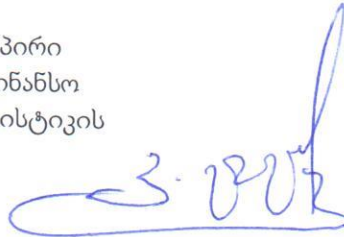 პირი
ინანსო
ისტიკის